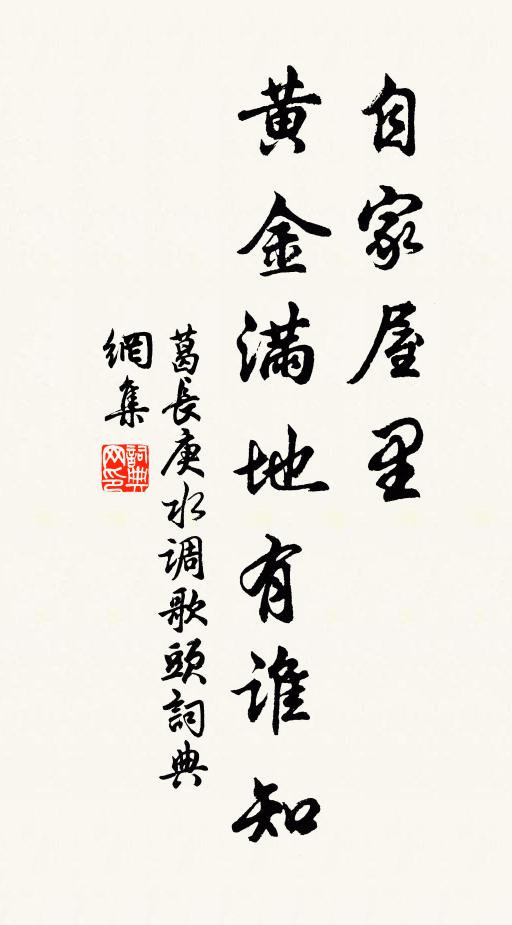 自家屋里
黄金满地有谁知
葛長庚水调歌頭詞典
網集
詞典
网印